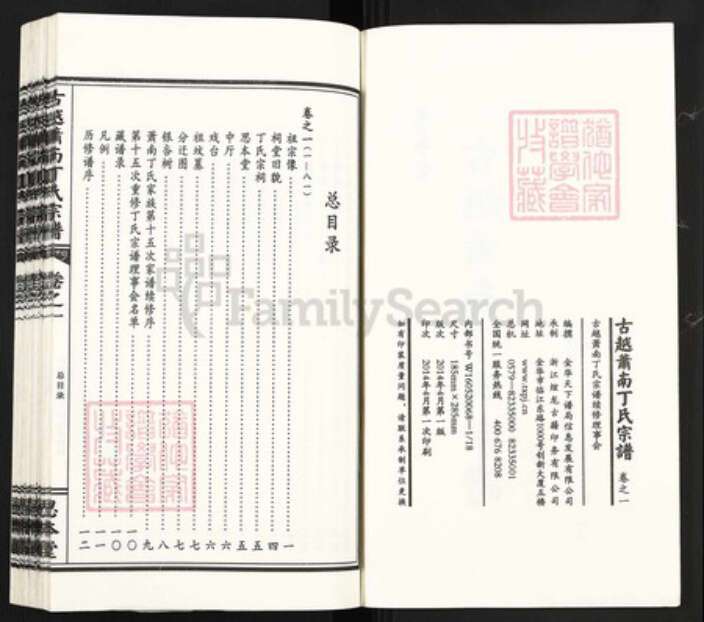 古越萧南丁氏宗谱 卷之一
古越萧南丁氏宗谱续修理事会
编撰 金华天下谱局信息发展有限公司
承制 浙江煌龙古籍印务有限公司
地址 金华市临江东路1000号创新大厦五楼
网址 www.txpj.cn
总机 0579—82335000 82335001
全国统一服务热线 400 676 8208
内部书号 W160520068—1/18
尺寸 185mm×285mm
版次 2014年4月第一版
印次 2014年4月第一次印刷
如有印装质量问题,请联系承制单位更换
总目录
卷之一(1—八一)
祖宗像 一
祠堂旧貌 四
丁氏宗祠 五
思本堂 五
中厅 六
戏台 六
祖坟墓 七
分迁图 七
银杏树 八
萧南丁氏家族第十五次家谱续修序 九
第十五次重修丁氏宗谱理事会名单 一〇
藏谱录 一〇
凡例 一一
历修谱序 一二
古越萧南丁氏宗谱
卷之一
总目录
思本堂
FamilySearch